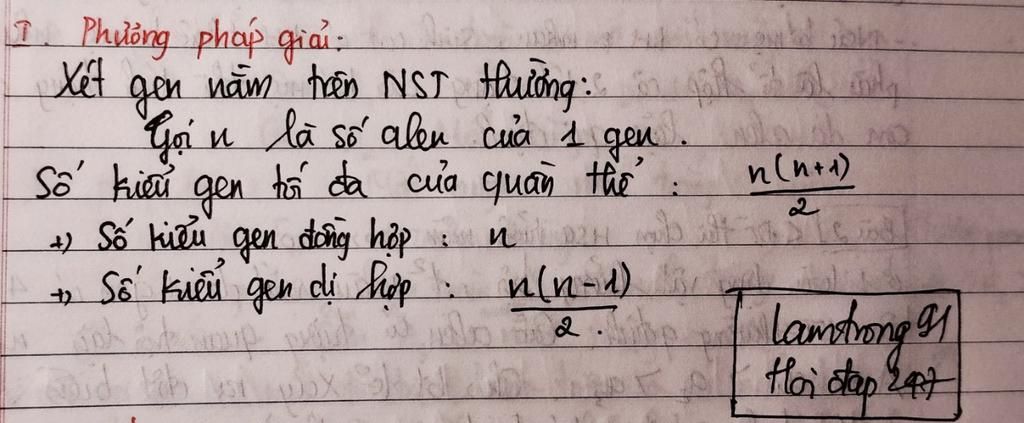 I. Phương pháp giải:
Xét gen nằm trên NST thường:
Gọi n là số alen của 1 gen.
Số kiểu gen tối đa của quần thể : n(n+1)/2
+) Số kiểu gen đồng hợp : n
+) Số kiểu gen dị hợp : n(n-1)/2.
lamtrong 91
Hoi đap 247